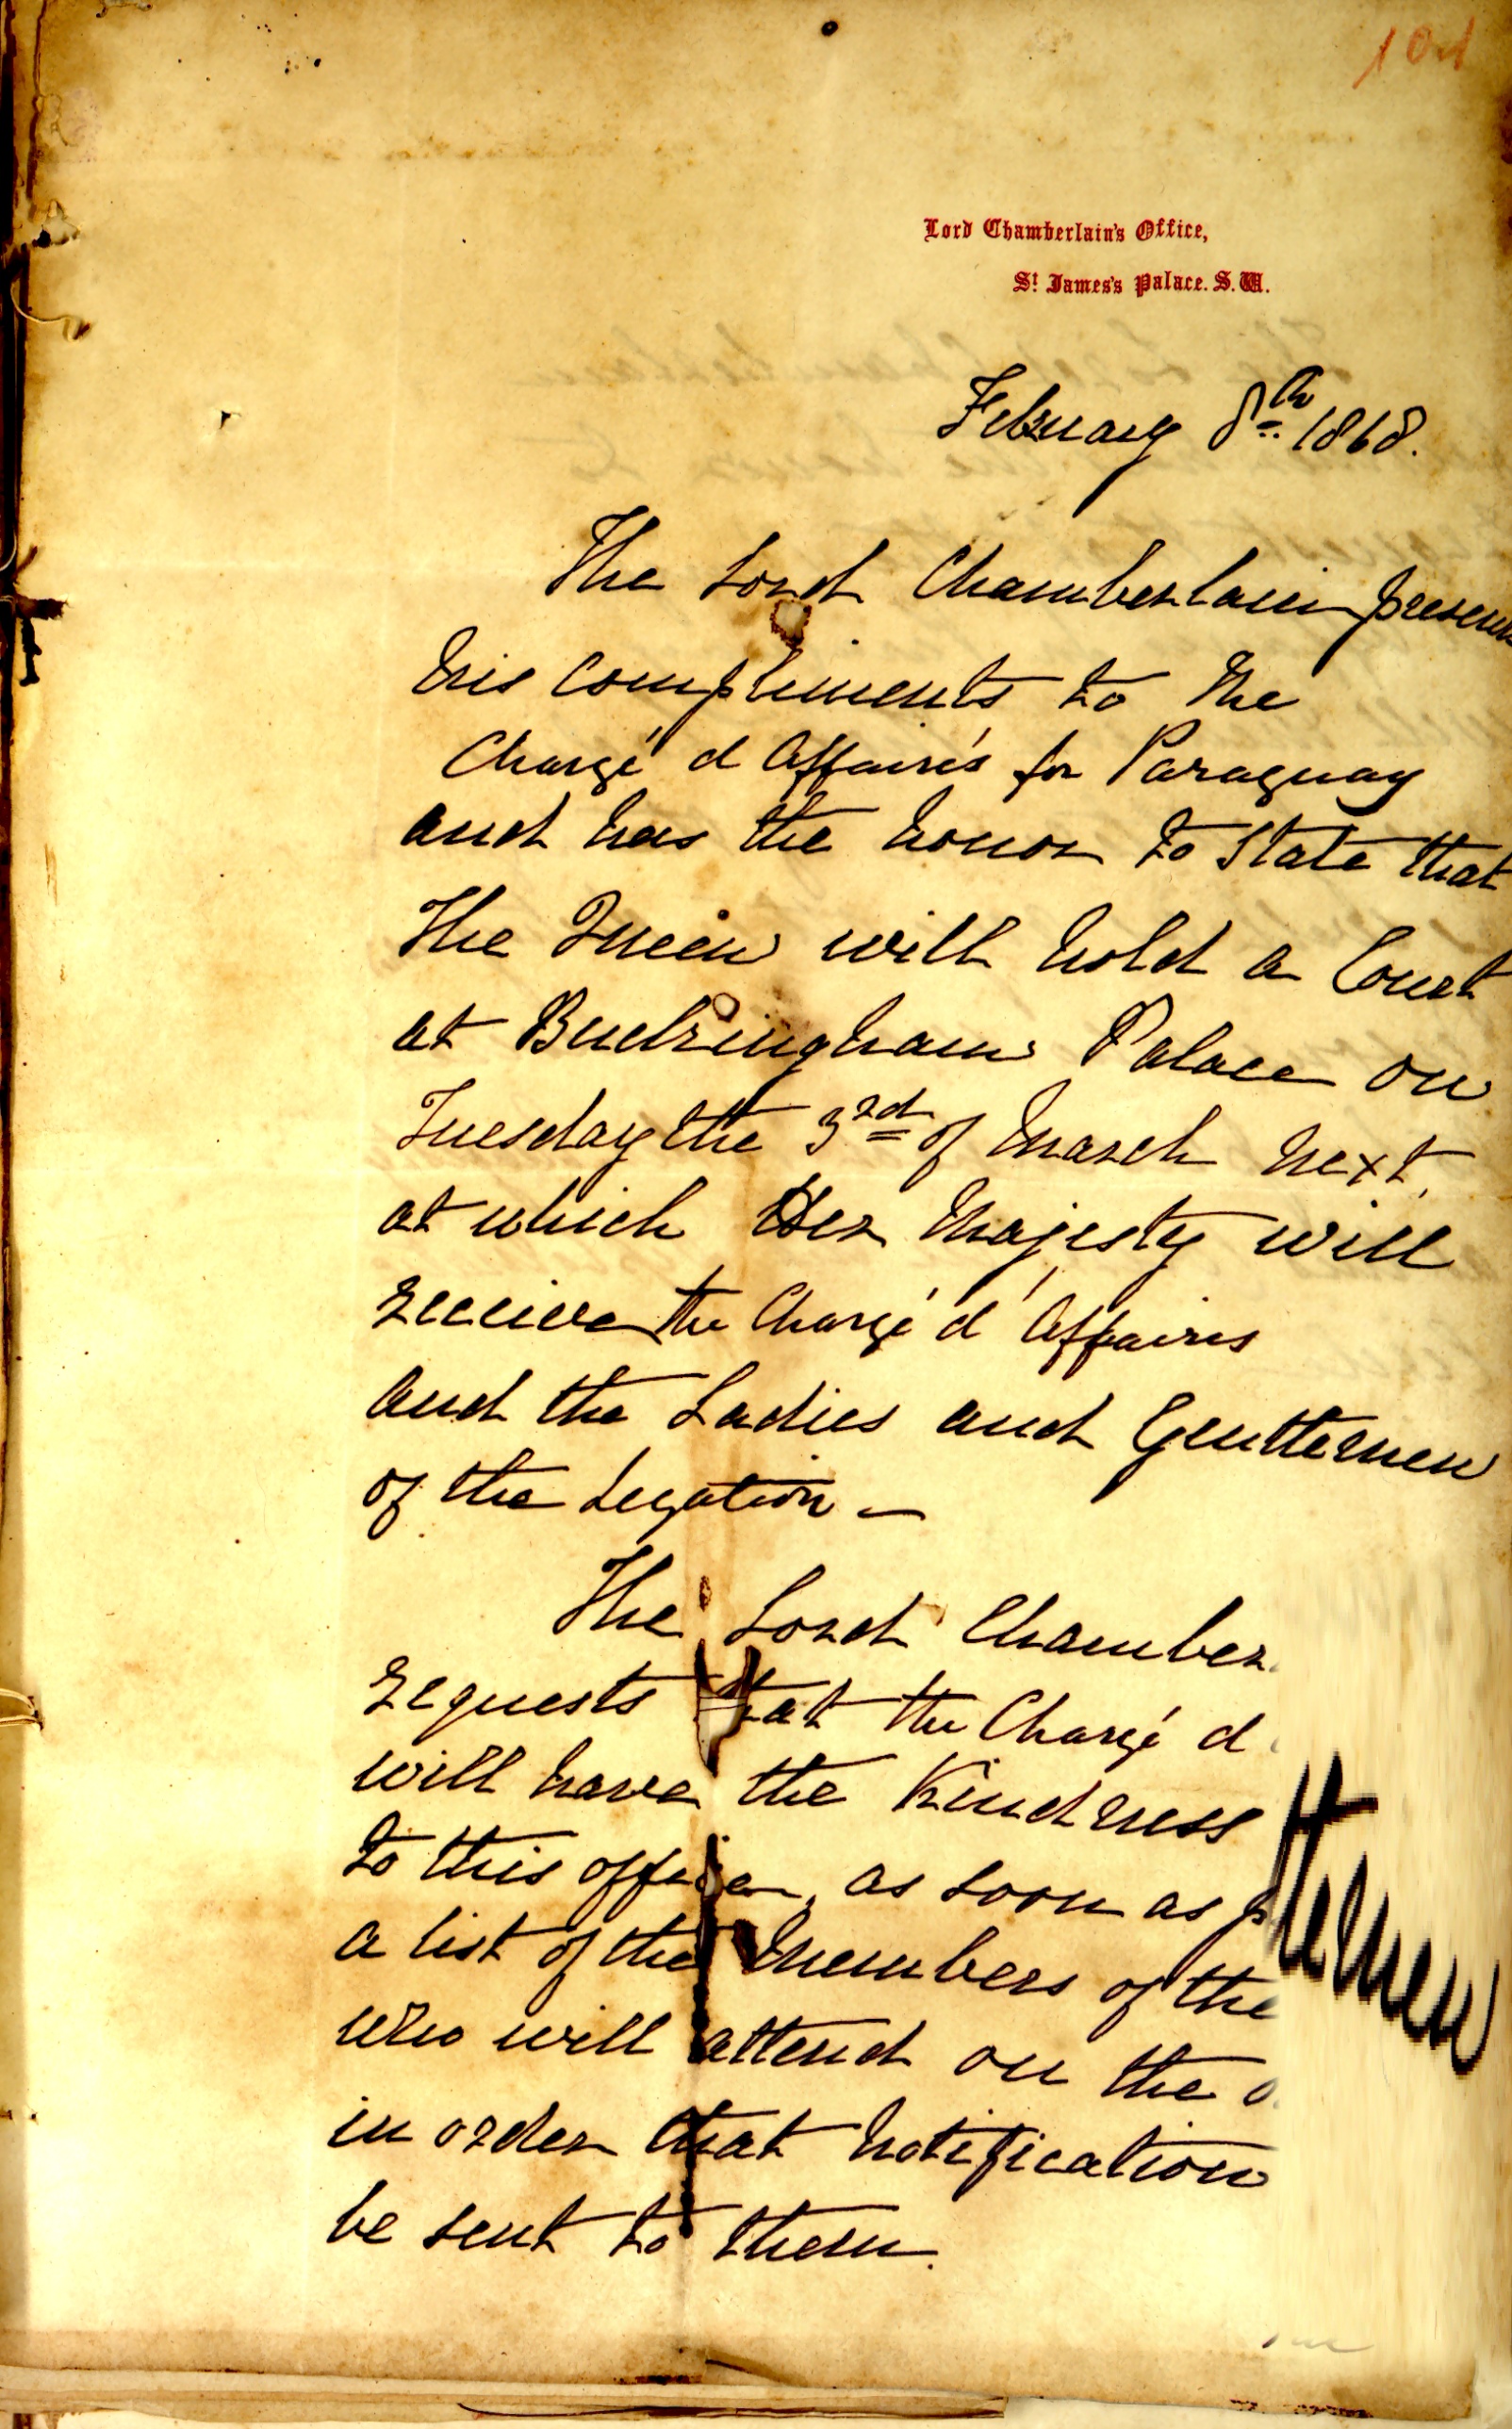 Lord Chamberlain's Office,
St James's Palace. S.W.
February 8th 1868.
The Lord Chamberlain presen
his compliments to the
Chargé d'Affaires for Paraguay
and has the honor to state that
The Queen will hold a Court
at Buckingham Palace on
Tuesday the 3rd of March next,
at which Her Majesty will
receive the Chargé d'Affaires
and the Ladies and Gentlemen
of the Legation —
The Lord Chamber
requests that the Chargé d
will have the kindness
to this office, as soon as p
a list of the Members of the
who will attend on the
in order that notification
be sent to them.